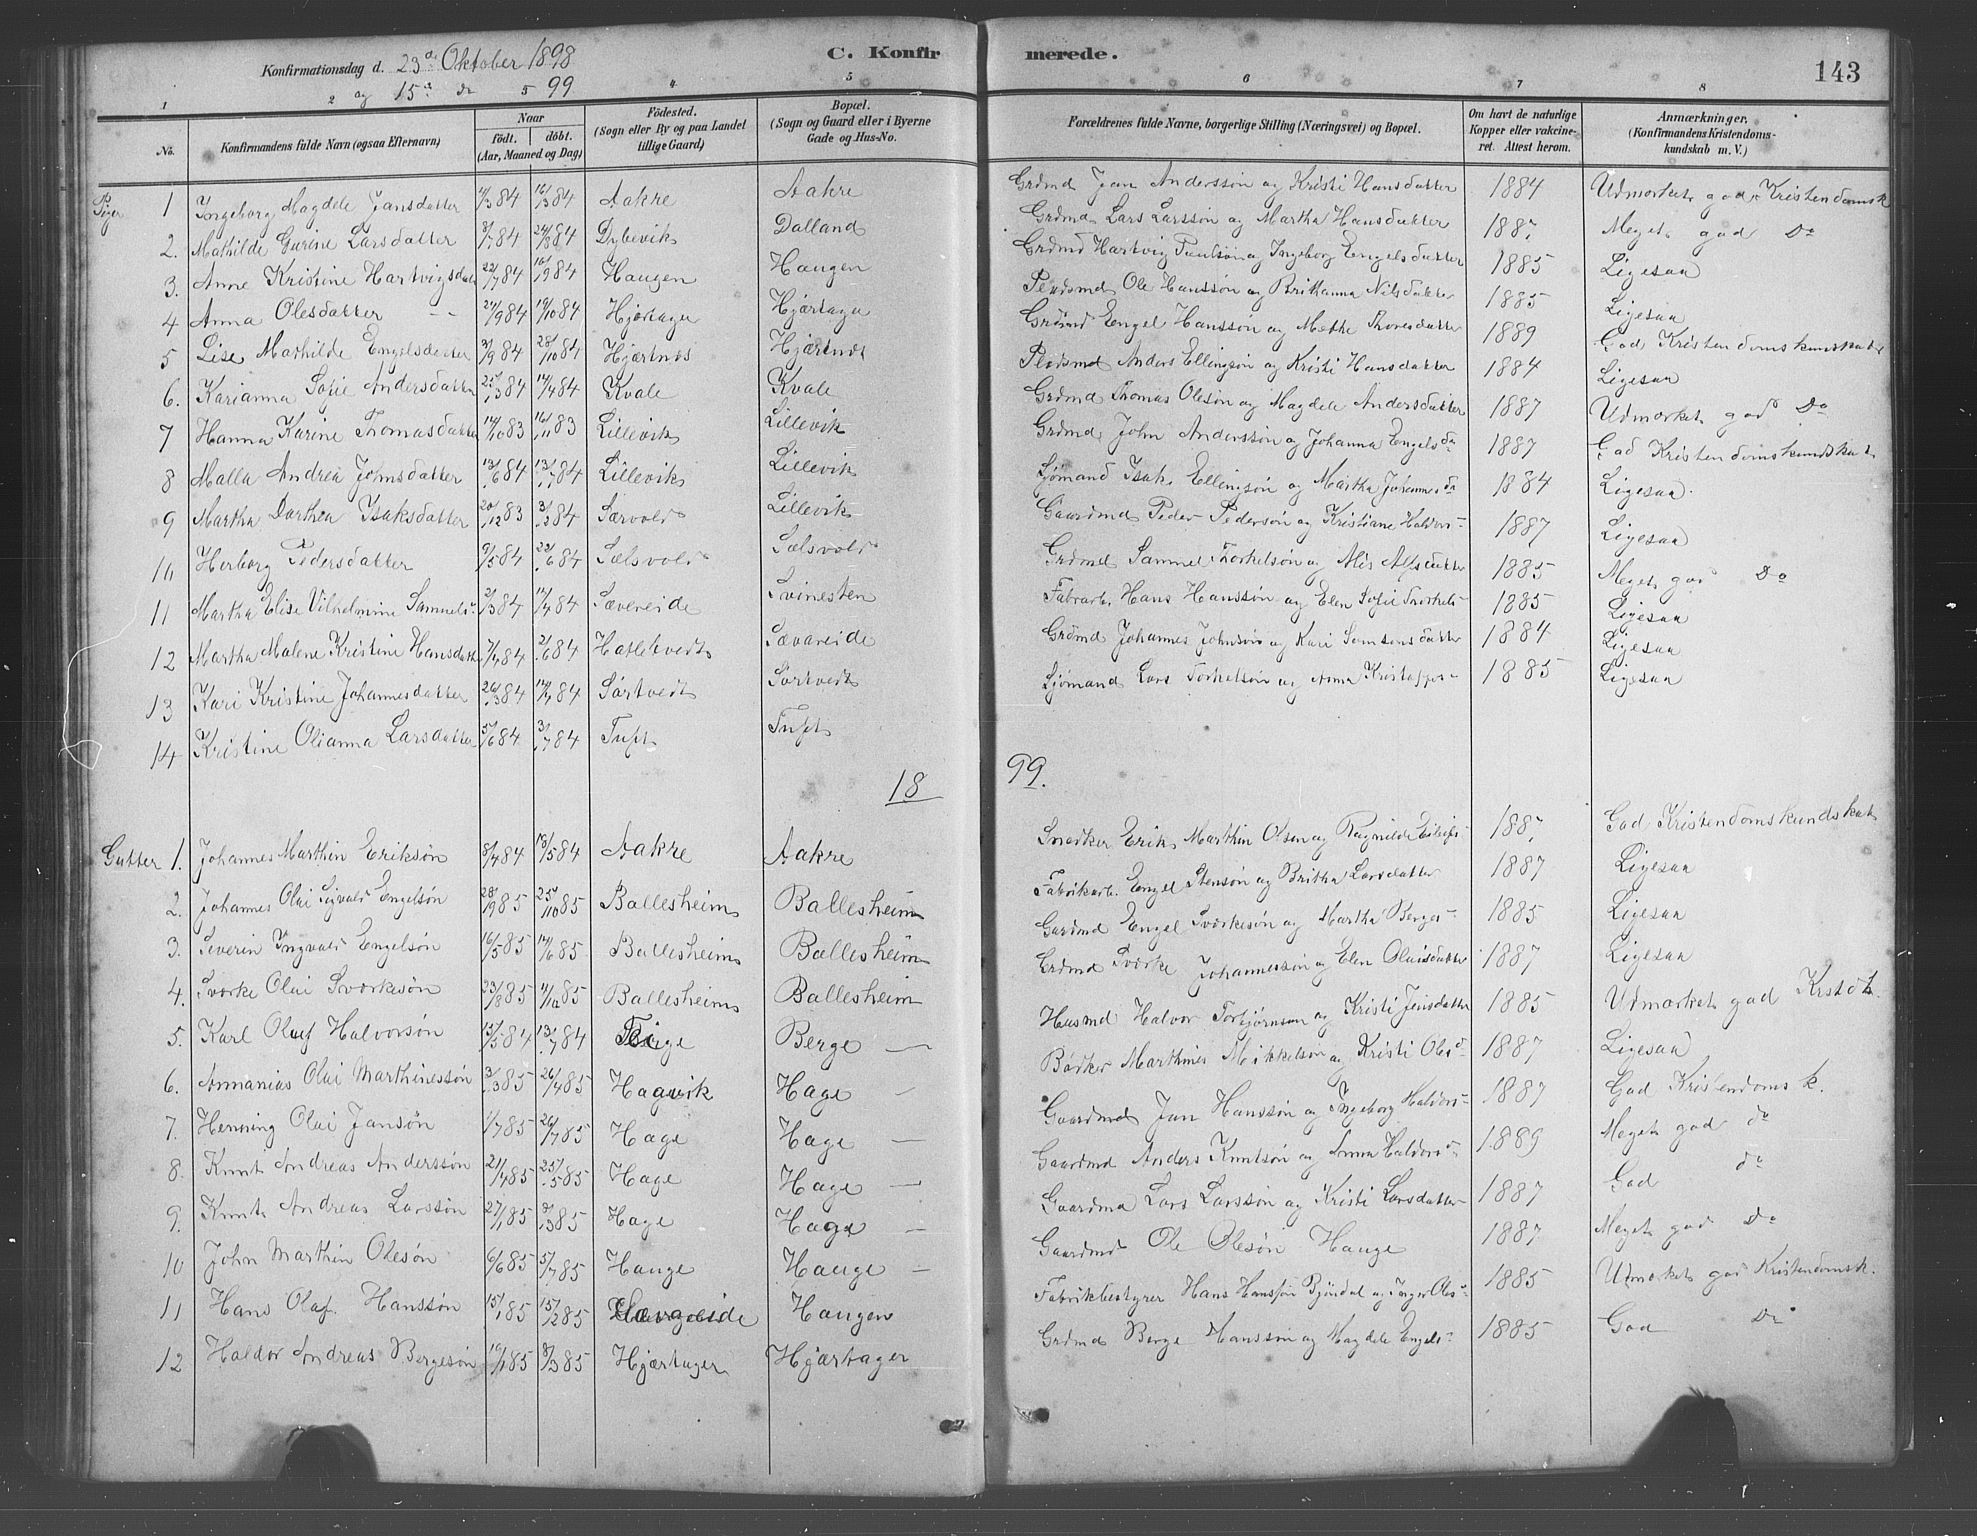 Konfirmationsdag d. 23de Oktober 1898
og 15de do 99
C. Konfirmerede.
143
1 2 5 4 5 6 7 8
No. Konfirmandens fulde Navn (ogsaa Efternavn) Naar födt. döbt. (Aar, Maaned og Dag) Födested. (Sogn eller By og paa Landet tillige Gaard) Bopæl. (Sogn og Gaard eller i Byerne Gade og Hus-No. Forældrenes fulde Navne, borgerlige Stilling (Næringsvei) og Bopæl. Om havt de naturlige Kopper eller vaccineret. Attest herom. Anmærkninger. (Konfirmandens Kristendomskundskab m. V.)
Piger 1 Ingeborg Magdele Jansdatter 11/3 84 16/3 84 Aakre Aakre Grdmd Jan Anderssøn og Kristi Hansdatter 1884 Udmærket god Kristendomsk
2. Mathilde Gurine Larsdatter 3/7 84 24/8 84 Dybevik Dalland Grdmd Lars Larssøn og Martha Hansdatter 1887 Meget god Do
3. Anne Kristine Hartvigsdat 22/7 84 /9 84 Haugen Haugen Grdmd Hartvig Paulsøn og Ingeborg Engelsdatter 1885 Ligesaa
4 Anna Olesdatter 27/9 84 19/10 84 Hjørtager Hjørtager Pladsmd Ole Hanssøn og Brithanna Nilsdatter 1885 Ligesaa
5 Lise Mathilde Engelsdatter /9 84 28/10 84 Hjærtnæs Hjærtnæs Grdmd Engel Hanssøn og Methe Thoresdatter 1889 God Kristendomskundskab
6. Karianna Sofie Andersdatter 25/3 84 14/4 84 Kvale Kvale Pladsmd Anders Ellingsøn og Kristi Hansdatter 1884 Ligesaa
7 Hanna Karine Thomasdatter 14/10 83 16/11 83 Lillevik Lillevik Grdmd Thomas Olesøn og Magdele Andersdatter 1887 Udmærket god Do
8 Malla Andrea Johnsdatter 13/6 84 13/7 84 Lillevik Lillevik Grdmd John Anderssøn og Johanna Engelsda 1887 God Kristendomskundskab
9 Martha Dorthea Isaksdatter 20/12 83 3/3 84 Særvold Lillevik Sjømand Isak Ellingsøn og Martha Johannesda 1884 Ligesaa
10 Herborg Pedersdatter 9/5 84 22/6 84 Sælsvold Sælsvold Gaardmd Peder Pedersøn og Kristiane Haldors- 1887 Ligesaa
11 Martha Elise Vilhelmine Samuels- 2/3 84 14/4 84 Sævereide Svinesten Grdmd Samuel Torkelsøn og 1885 Meget god Do
12 Martha Malene Kristine Hansdatt 7/4 84 2/6 84 Hatletvedt Sævareide Fabrarb. Hans Hanssøn og Elen Sofie Torkels- 1885 Ligesaa
13 Kari Kristine Johannesdatter 26/3 84 14/4 84 Sørtvedt Sørtvedt Grdmd Johannes Johnsøn og Kari Samsonsdatter 1884 Ligesaa
14 Kristine Olianna Larsdatter 5/6 84 3/7 84 Tuft Tuft Sjømand Lars Torkelsøn og Anna Kristoffers- 1885 Ligesaa
18 99.
Gutter 1. Johannes Marthin Eriksøn 8/4 84 18/5 84 Aakre Aakre Snedker Erik Marthin Olsen og Ragnilde Eilefs- 1887 God Kristendomskundskab
2. Johannes Olai Sigvald Engelsøn 28/9 85 25/10 85 Ballesheim Ballesheim Fabrikarb. Engel Stensøn og Britha Larsdatter 1887 Ligesaa
3. Severin Ingvald Engelsøn 16/5 85 14/6 85 Ballesheim Ballesheim Gardmd Engel Sværkesøn og Martha Berges- 1885 Ligesaa
4. Sværke Olai Sværkesøn 23/8 85 11/10 85 Ballesheim Ballesheim Grdmd Sværke Johannessøn og Elen Olaisdatter 1887 Ligesaa
5. Karl Oluf Halvorsøn 15/5 84 13/7 84 Berge Husmd Halvor Torbjørnsøn og Kristi Jensdatter 1885 Udmærket god Krstd k.
6. Annanias Olai Marthinessøn 3/3 85 26/4 85 Hagevik Hage Bødker Marthines Mikkelson og Kristi Olesd 1887 Ligesaa
7. Henning Olai Jansøn 1/7 85 26/7 85 Hage Hage Gaardmd Jan Hanssøn og Ingeborg Haldors- 1887 God Kristendoms k.
8. Knut Andreas Anderssøn 21/4 85 25/5 85 Hage Hage Gaardmd Anders Knutsøn og Anna Haldors- 1889 Meget god do
9. Knut Andreas Larssøn 27/1 85 8/3 85 Hage Hage Gaardmd Lars Larssøn og Kristi Larsdatter 1887 God do
10 John Marthin Olesøn 6/6 85 5/7 85 Hauge Hauge Gaardmd Ole Olesøn Hauge 1887 Meget god Do
11 Hans Olaf Hanssøn 15/1 85 15/2 85 Sævareide Haugen Fabrikbestyrer Hans Hanssøn Bjöndal og Inger Oles- 1885 Udmærket god Kristendomsk.
12 Haldor Andreas Bergesøn 19/1 85 8/3 85 Hjærtager Hjærtager Grdmd Berge Hanssøn og Magdele Engels- 1885 God Do